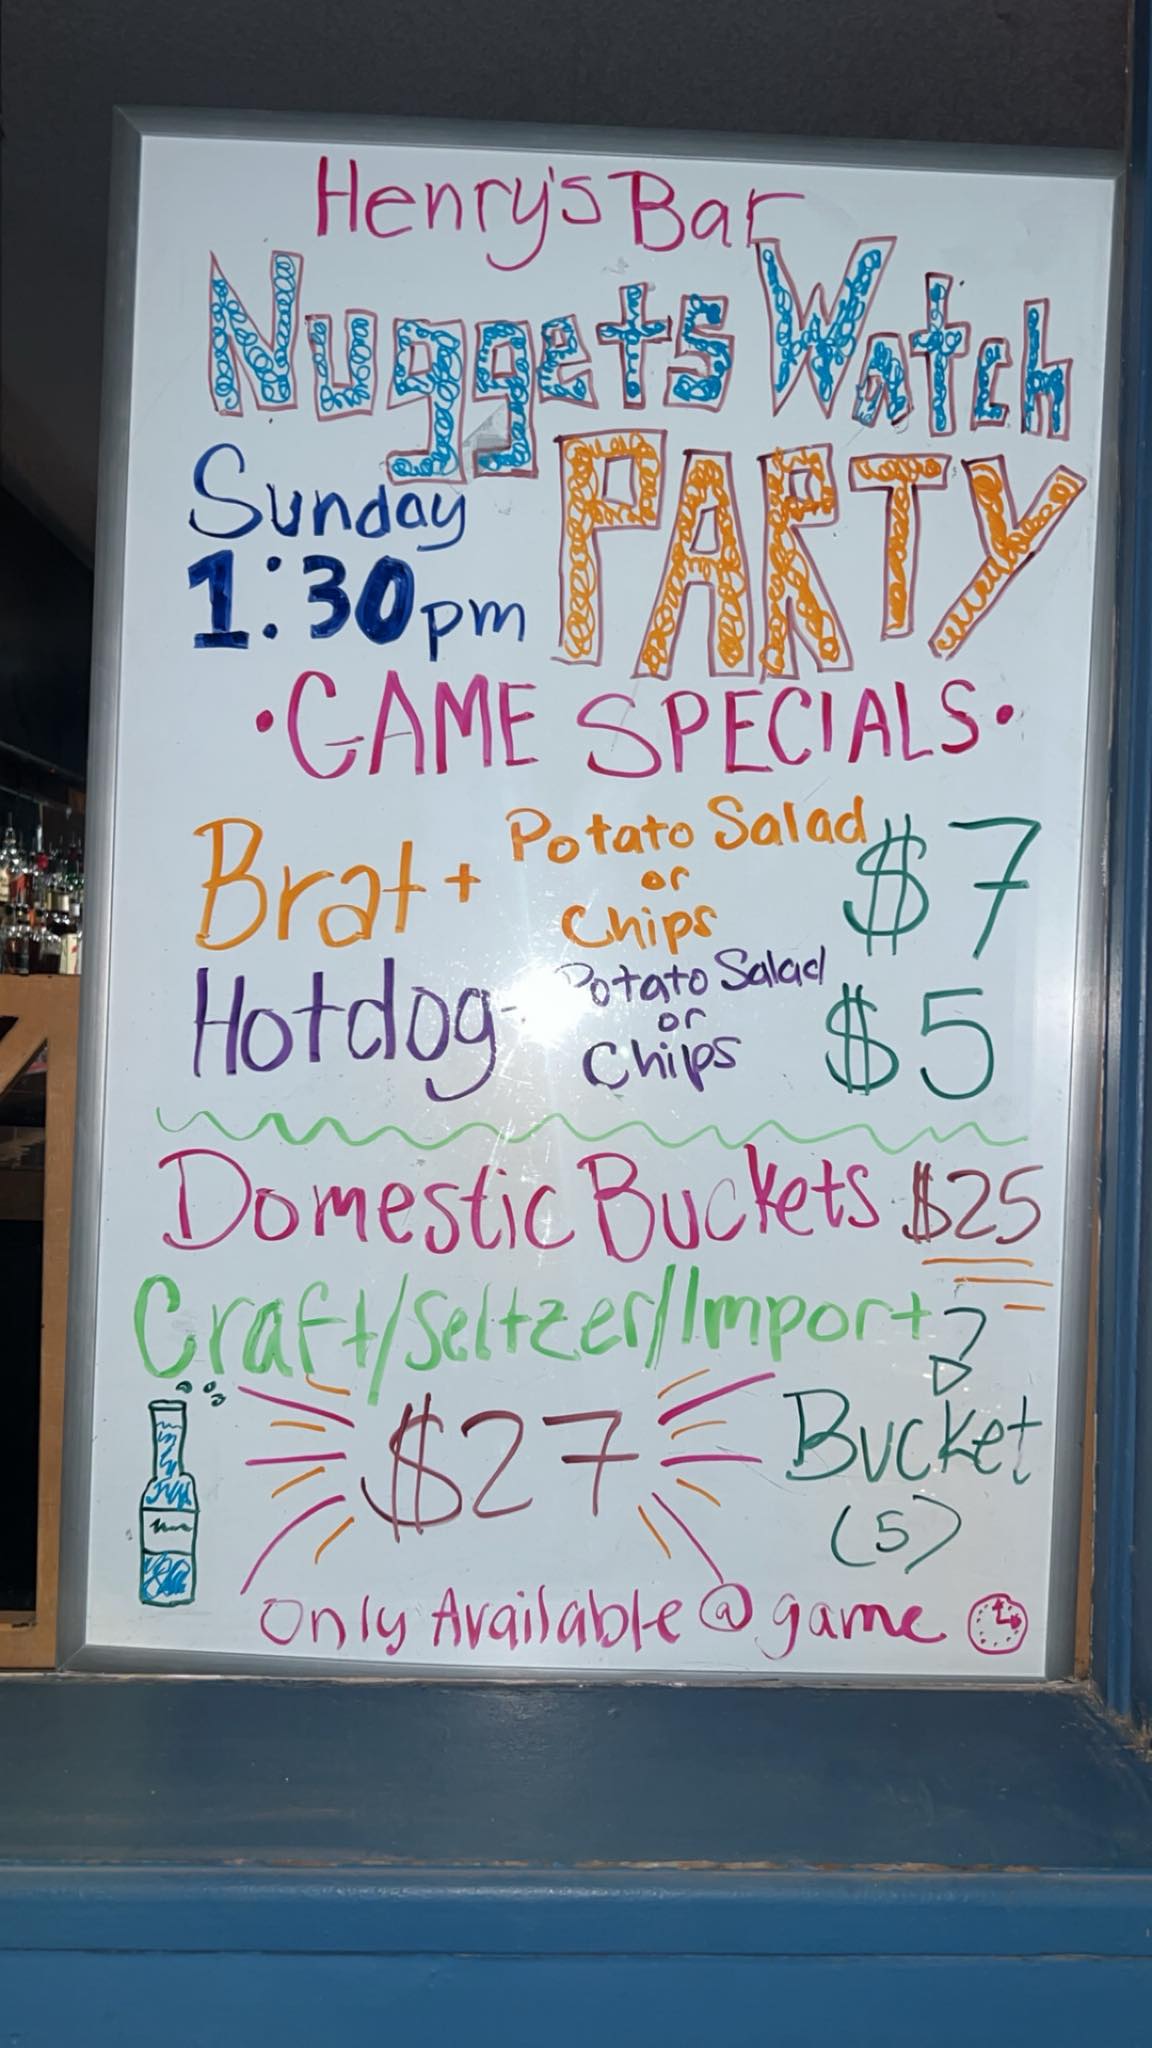 Henry's Bar
Nuggets Watch
PARTY
Sunday
1:30pm
•GAME SPECIALS•
Brat + Potato Salad or Chips $7
Hotdog Potato Salad or Chips $5
Domestic Buckets $25
Craft/Seltzer/Import
$27
Bucket
(5)
Only Available @ game